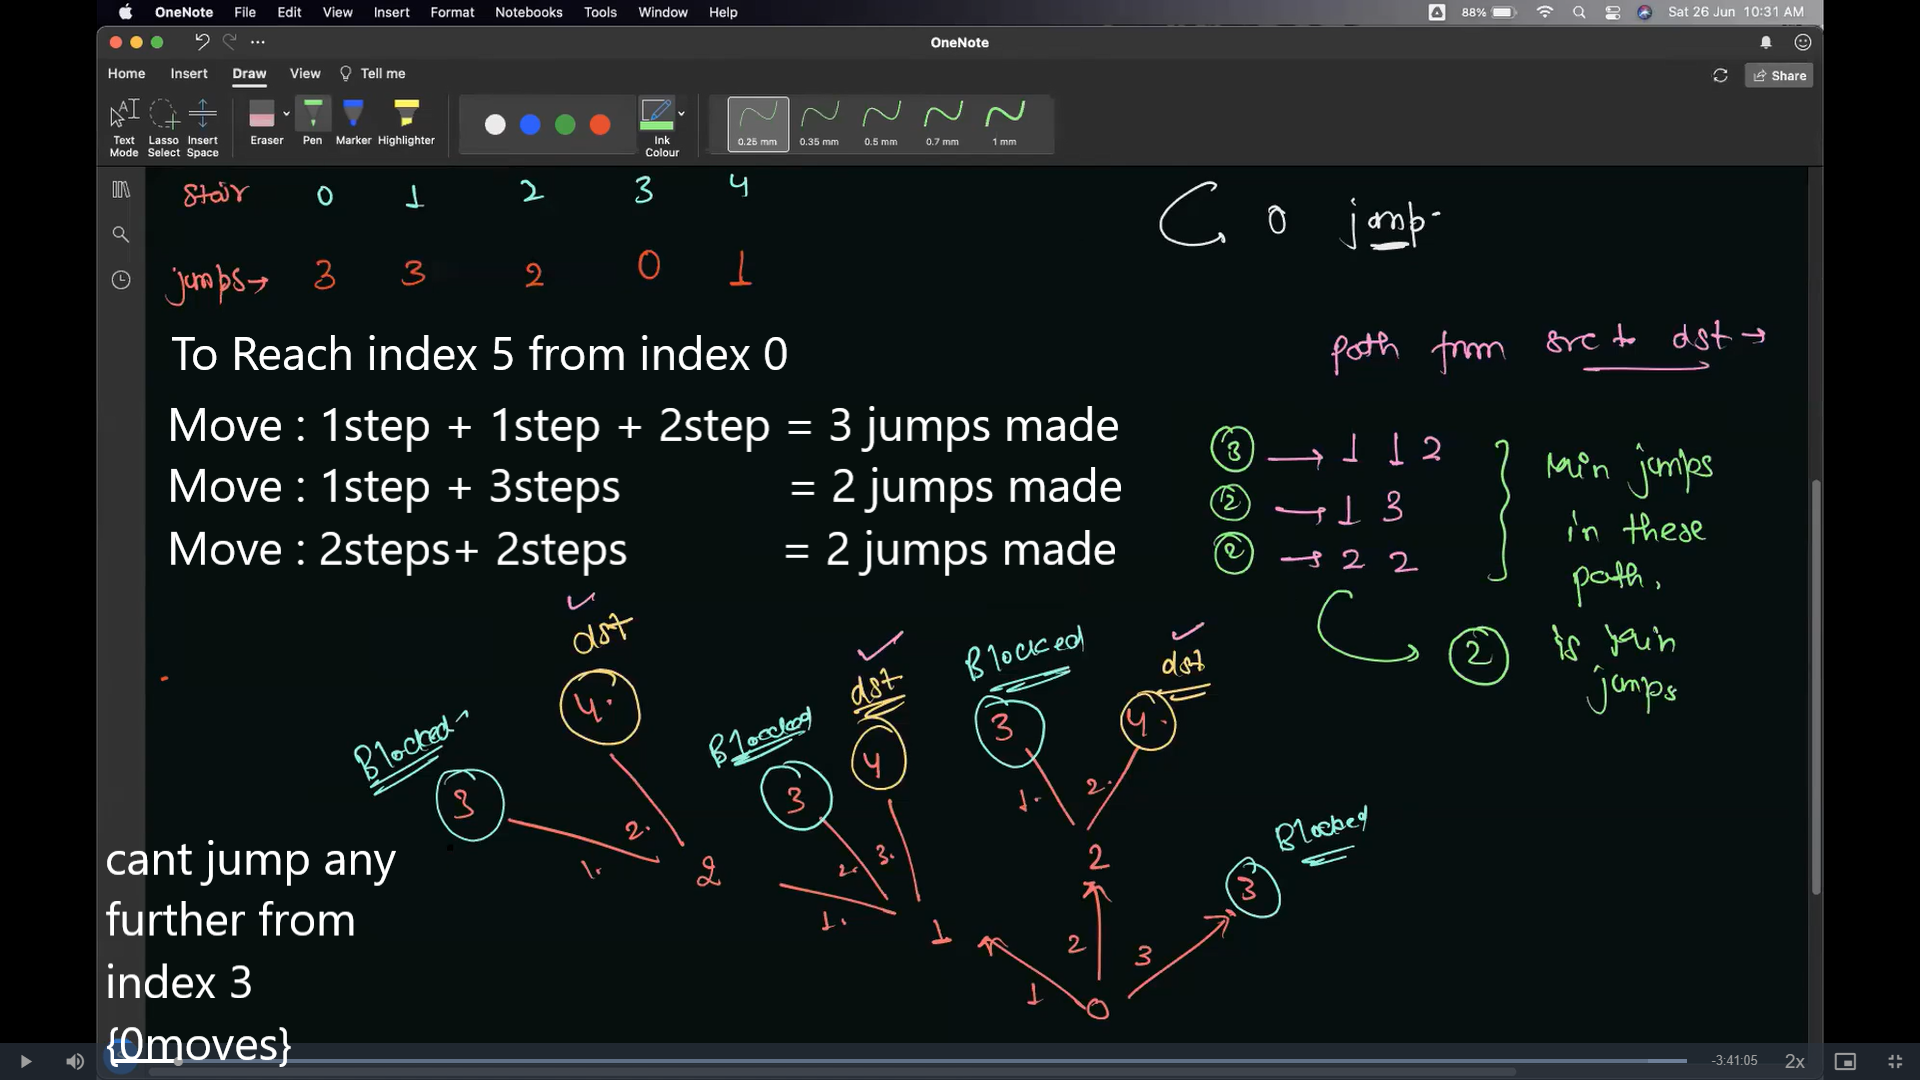 OneNote File Edit View Insert Format Notebooks Tools Window Help 88% Sat 26 Jun 10:31 AM
OneNote
Home Insert Draw View Tell me Share
Text Mode Lasso Select Insert Space Eraser Pen Marker Highlighter Ink Colour 0.25 mm 0.35 mm 0.5 mm 0.7 mm 1 mm
stair 0 1 2 3 4
0 jump
jumps → 3 3 2 0 1
To Reach index 5 from index 0
path from src to dst →
Move : 1step + 1step + 2step = 3 jumps made
Move : 1step + 3steps = 2 jumps made
Move : 2steps+ 2steps = 2 jumps made
3 → 1 1 2
2 → 1 3
2 → 2 2
min jumps
in these
path.
2 is min
jumps
dst
4
Blocked
3
2.
1.
2
Blocked
3
dst
4
2.
3.
1.
1
Blocked
3
dst
4
1.
2.
2
Blocked
3
1
2
3
0
cant jump any
further from
index 3
{0moves}
-3:41:05 2x